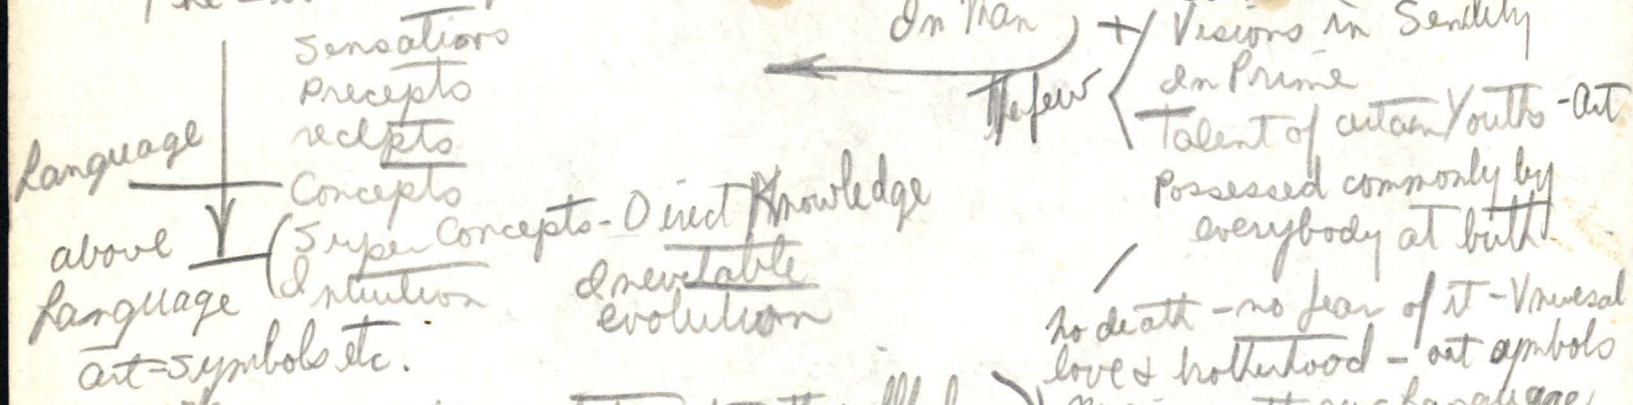 Sensations
Precepts
recepts
Language
Concepts
above
Language
Super Concepts - Direct Knowledge
Intuition
Inevitable
evolution
art = symbols etc.
In Man
+
The few
Visions in Senility
In Prime
Talent of certain Youths - Art
Possessed commonly by
everybody at birth
No death - no fear of it - Universal
love & brotherhood - art symbols
Language